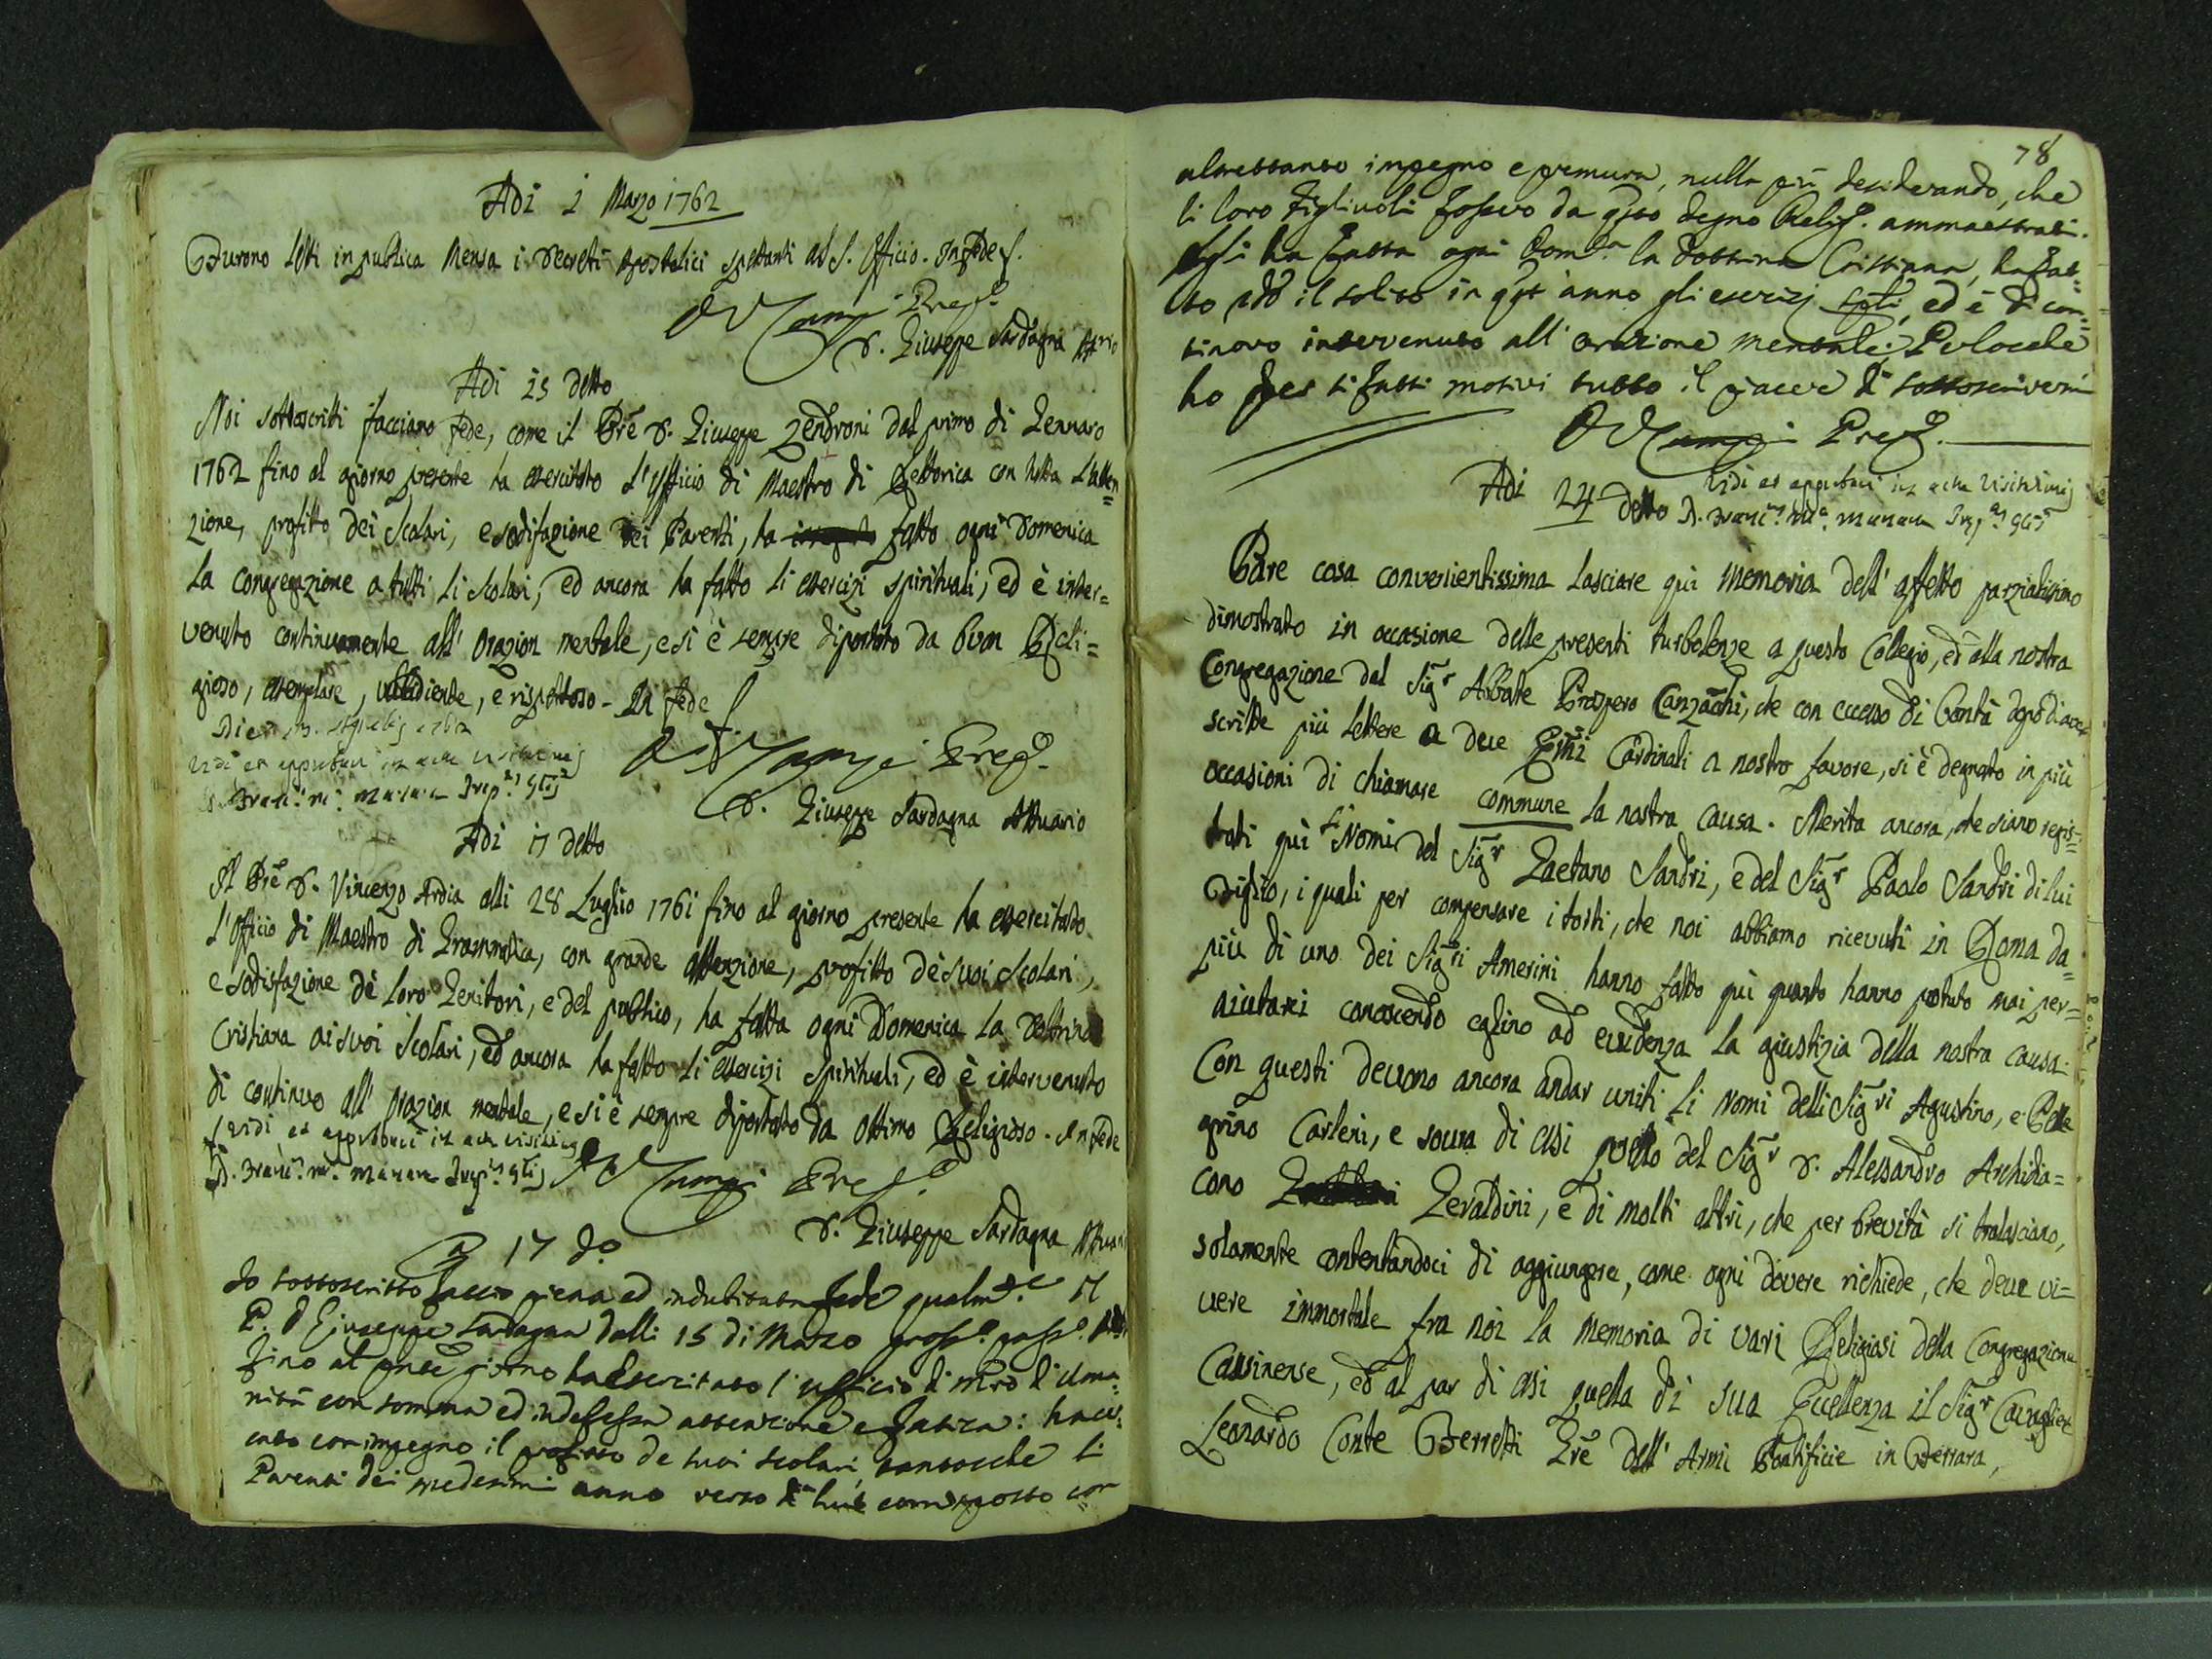 Adi 1 Marzo 1762
Furono letti in publica Mensa i Decreti Apostolici spettanti al S. Officio. In fede
Prep.o
D. Giuseppe Sardagna Att.rio
Adi 15 detto
Noi sottoscritti facciamo fede, come il Prē D. Giuseppe Zendroni dal primo di Gennaro
1762 fino al giorno presente ha esercitato l'Ufficio di Maestro di Rettorica con tutta l'atten=
zione, profitto dei Scolari, e sodisfazione dei Parenti, ha fatto ogni Domenica
la Congregazione a tutti li Scolari, ed ancora ha fatto li esercizi spirituali, ed è inter=
venuto continuamente all' Orazion mentale, e si è sempre diportato da buon Reli=
gioso, esemplare, ubbidiente, e rispettoso - In fede
Die Aprilis 1762
Vidi et approbavi in actu Visitationis
D. Franc. M.a Manara
Prep.o
D. Giuseppe Sardagna Attuario
Adi 17 detto
Il Prē D. Vincenzo Ardia alli 28 Luglio 1761 fino al giorno presente ha esercitato
l'Officio di Maestro di Grammatica, con grande attenzione, profitto de suoi Scolari,
e sodisfazione dè loro Genitori, e del publico, ha fatta ogni Domenica la Dottrina
Cristiana ai suoi Scolari, ed ancora ha fatto li esercizi Spirituali, ed è intervenuto
di continuo all' Orazion mentale, e si è sempre diportato da ottimo Religioso. In fede
Vidi et approbavi in actu Visitationis
D. Franc. M.a Manara
Prep.o
D. Giuseppe Sardagna Attuario
17 do
Io sottoscritto faccio piena ed indubitata fede qualm.e il
P. D Giuseppe Sardagna dalli 15 di Marzo pross.o pass.o
fino al pnte giorno ha esercitato l'ufficio di Mro d'Uma=
nità con somma ed indefessa attenzione e fatica: ha
con impegno il profitto de suoi scolari, tantocche li
Parenti dei medesimi anno verso di lui corrisposto con
78
altrettanto impegno e premura, nulla più desiderando, che
li loro Figliuoli fossero da qsto degno Relig.o ammaestrati.
Egli ha fatta ogni Dom.ca la Dottrina Cristiana, ha fat=
to il solito in qst' anno gli esercizj splī, ed è di con=
tinovo intervenuto all' orazione mentale. Perlocche
ho per sì fatti motivi tutto il piacere di sottoscrivermi
Prep.o
Adi 24 detto
Vidi et approbavi in actu Visitationis
D. Franc. M.a Manara
Pare cosa convenientissima lasciare quì memoria dell' affetto parzialissimo
dimostrato in occasione delle presenti turbolenze a questo Collegio, ed alla nostra
Congregazione dal Sig.r Abbate Prospero Canzachi, che con eccesso di bontà dopo di aver
scritte più lettere a due Emī Cardinali a nostro favore, si è degnato in più
occasioni di chiamare commune la nostra causa. Merita ancora, che siano regis=
trati quì li Nomi del Sig.r Gaetano Sandri, e del Sig.r Paolo Sandri di lui
Figlio, i quali per compensare i torti, che noi abbiamo ricevuti in Roma da
più di uno dei Sig.ri Amerini hanno fatto quì quanto hanno potuto mai per=
aiutarci conoscendo eglino ad evidenza la giustizia della nostra causa.
Con questi devono ancora andar uniti li Nomi delli Sig.ri Agustino, e Pelle
grino Carleni, e sovra di essi quello del Sig.r D. Alessandro Archidia=
cono Geraldini, e di molti altri, che per brevità si tralasciano,
solamente contentandoci di aggiungere, come ogni dovere richiede, che deve vi=
vere immortale fra noi la memoria di vari Religiosi della Congregazione
Cassinense, ed al par di essi quella di Sua Eccellenza il Sig.r Cavaglier
Leonardo Conte Ferretti Grē dell' Armi Pontificie in Ferrara,